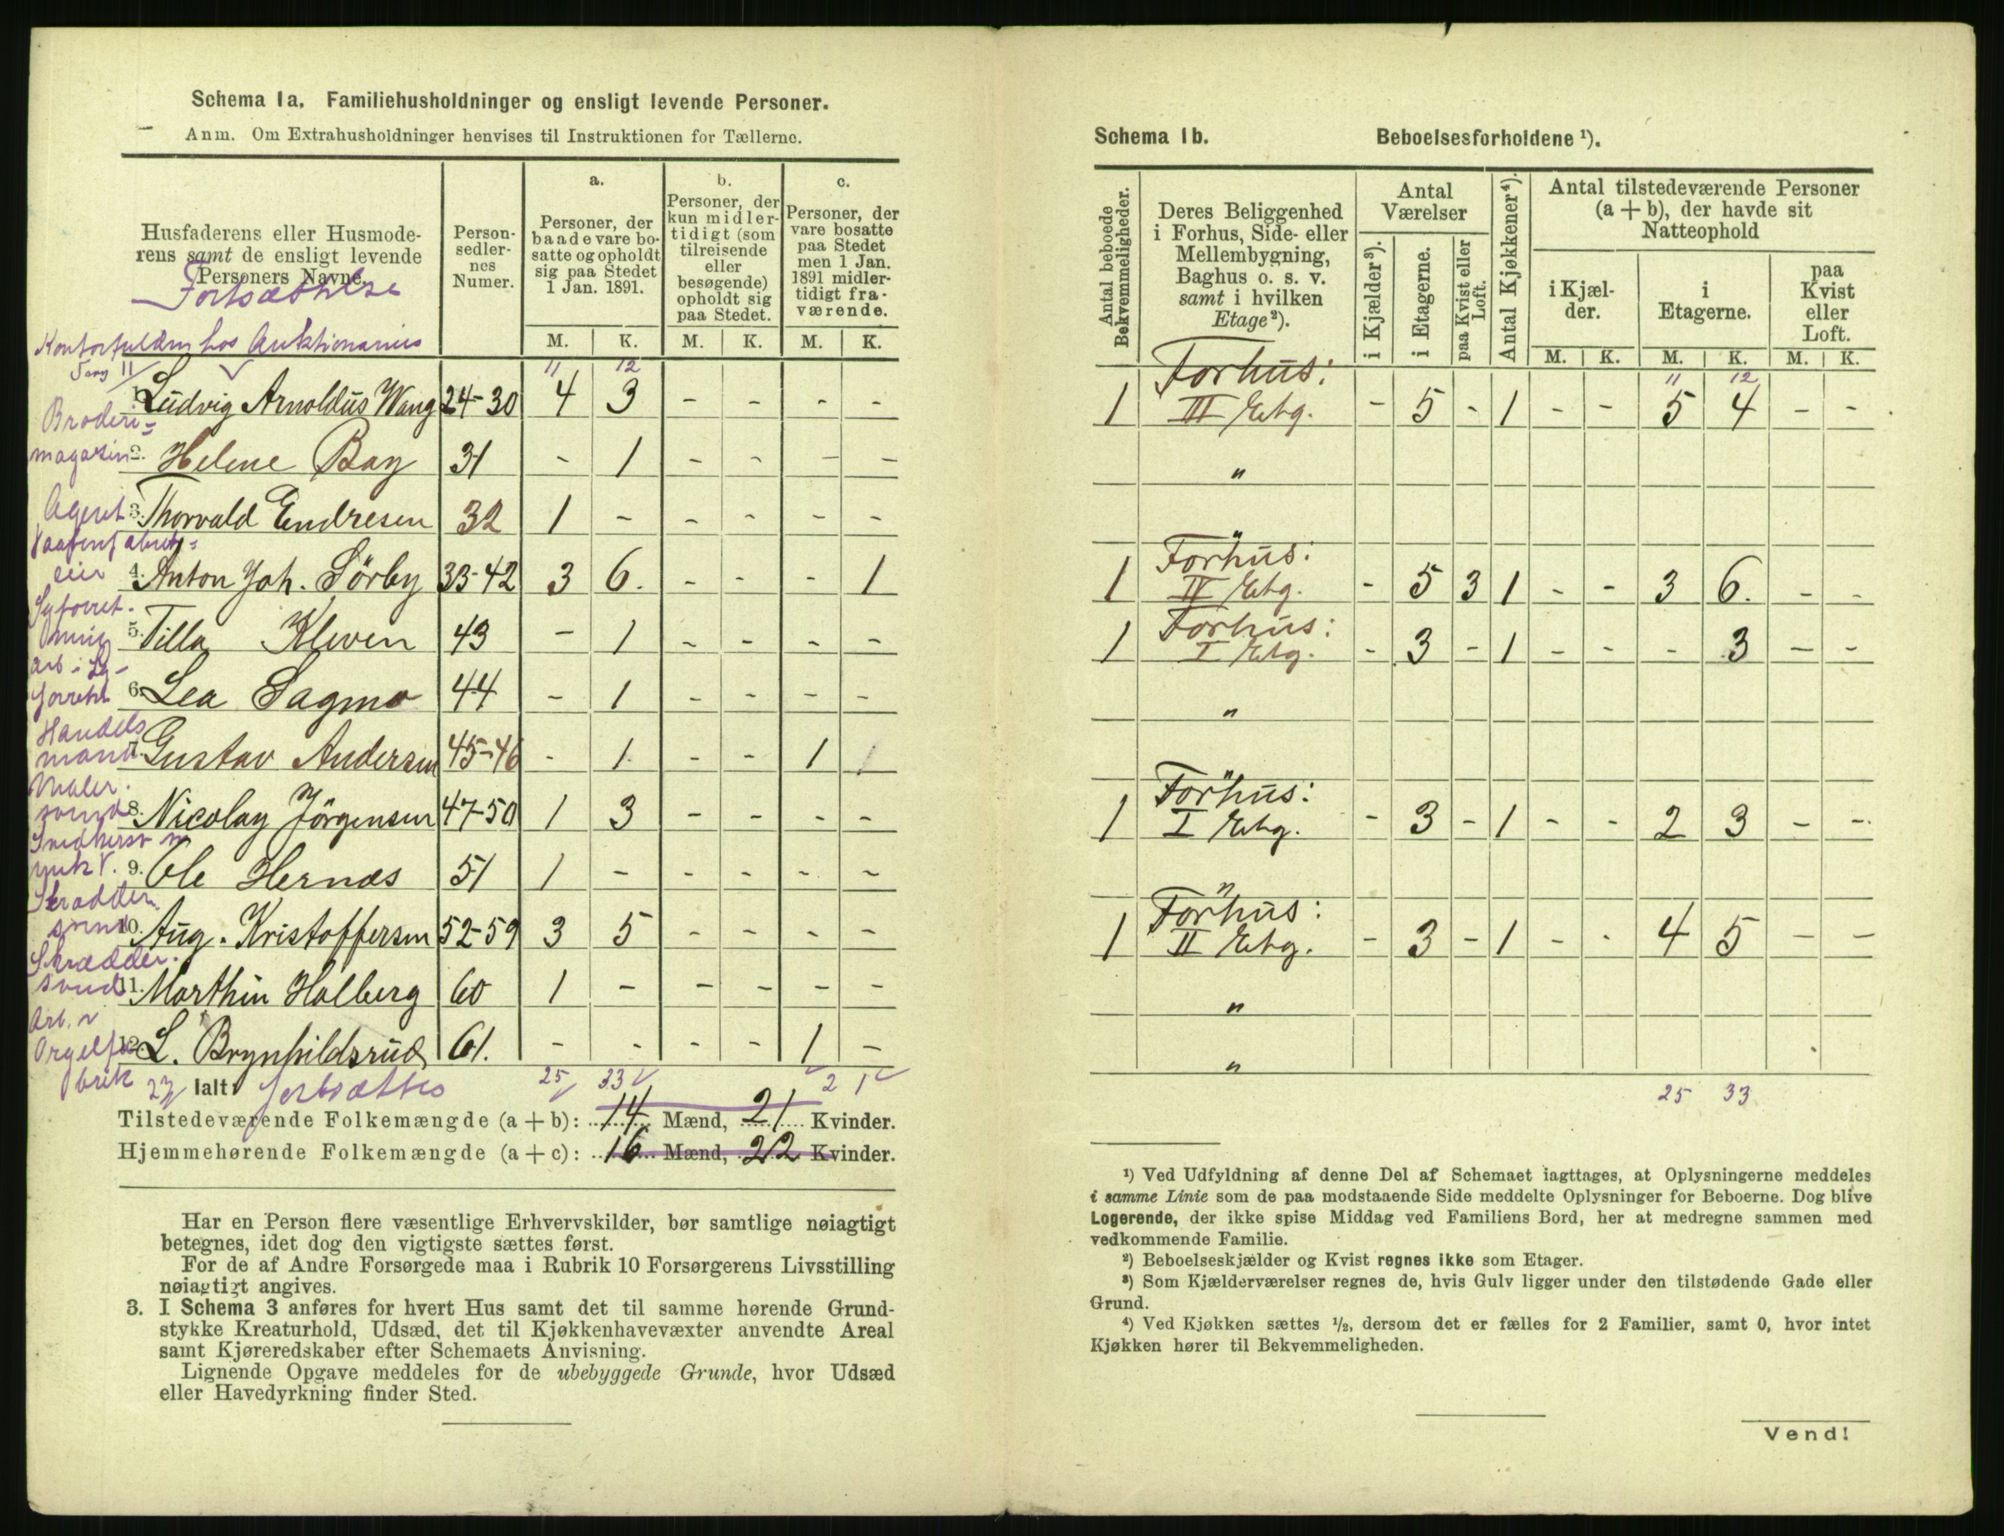 Schema 1a. Familiehusholdninger og ensligt levende Personer.
Anm. Om Extrahusholdninger henvises til Instruktionen for Tællerne.
Husfaderens eller Husmode-
rens samt de ensligt levende
Personers Navne.
Fortsættelse
Person-
sedler-
nes
Numer.
a.
Personer, der
baade vare bo-
satte og opholdt
sig paa Stedet
1 Jan. 1891.
b.
Personer, der
kun midler-
tidigt (som
tilreisende
eller
besøgende)
opholdt sig
paa Stedet.
c.
Personer, der
vare bosatte
paa Stedet
men 1 Jan.
1891 midler-
tidigt fra-
værende.
M. K. M. K. M. K.
hos Auktionarius
11 12
1. Ludvig Arnoldus Wang 24-30 4 3 - - - -
Broderi=
magasin 2. Helene Bay 31 - 1 - - - -
Agent 3. Thorvald Endresen 32 1 - - - - -
eier 4. Anton Joh. Sørby 33-42 3 6. - - - 1
5. Tilla Kleven 43 - 1 - - - -
6. Lea Sagmo 44 - 1 - - - -
Handels
mand 7. Gustav Andersen 45-46 - 1 - - 1 1
Maler.
svend 8. Nicolay Jörgensen 47-50 1 3 - - - -
9. Ole Hernæs 51 1 - - - - -
Skrædder
svend 10. Aug. Kristoffersen 52-59 3 5 - - - -
Skrædder.
svend 11. Marthin Holberg 60 1 - - - - -
Arb. v
Orgelfa
brik 12. L. Brynhildsrud 61. - - - - 1 -
Ialt: fortsættes 25 33 2 1
Tilstedeværende Folkemængde (a + b): 14 Mænd, 21 Kvinder.
Hjemmehørende Folkemængde (a + c): 16 Mænd, 22 Kvinder.
Har en Person flere væsentlige Erhvervskilder, bør samtlige nøiagtigt
betegnes, idet dog den vigtigste sættes først.
For de af Andre Forsørgede maa i Rubrik 10 Forsørgerens Livsstilling
nøiagtigt angives.
3. I Schema 3 anføres for hvert Hus samt det til samme hørende Grund-
stykke Kreaturhold, Udsæd, det til Kjøkkenhavevæxter anvendte Areal
samt Kjøreredskaber efter Schemaets Anvisning.
Lignende Opgave meddeles for de ubebyggede Grunde, hvor Udsæd
eller Havedyrkning finder Sted.
Schema 1b. Beboelsesforholdene ¹).
Antal beboede
Bekvemmeligheder.
Deres Beliggenhed
i Forhus, Side- eller
Mellembygning,
Baghus o. s. v.
samt i hvilken
Etage²).
Antal
Værelser
i Kjælder³).
i Etagerne.
paa Kvist eller
Loft.
Antal Kjøkkener⁴).
Antal tilstedeværende Personer
(a + b), der havde sit
Natteophold
i Kjæl-
der.
i
Etagerne.
paa
Kvist
eller
Loft.
M. K. M. K. M. K.
11 12
Forhus:
1 III Etg. - 5 - 1 - - 5 4 - -
"
"
Forhus:
1 IV Etg. - 5 3 1 - - 3 6. - -
Forhus:
1 I Etg. - 3 - 1 - - - 3 - -
"
"
Forhus:
1 I Etg. - 3 - 1 - - 2 3 - -
"
Forhus:
1 II Etg. - 3 - 1 - - 4 5 - -
"
"
25 33
¹) Ved Udfyldning af denne Del af Schemaet iagttages, at Oplysningerne meddeles
i samme Linie som de paa modstaaende Side meddelte Oplysninger for Beboerne. Dog blive
Logerende, der ikke spise Middag ved Familiens Bord, her at medregne sammen med
vedkommende Familie.
²) Beboelseskjælder og Kvist regnes ikke som Etager.
³) Som Kjælderværelser regnes de, hvis Gulv ligger under den tilstødende Gade eller
Grund.
⁴) Ved Kjøkken sættes ½, dersom det er fælles for 2 Familier, samt 0, hvor intet
Kjøkken hører til Bekvemmeligheden.
Vend!